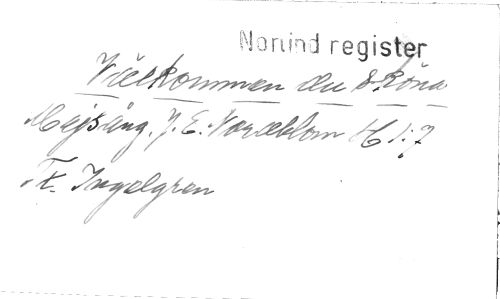 Notind register
Välkommen du sköna
Majsång. J. E. Nordblom H 1:7
Tx. Ingelgren